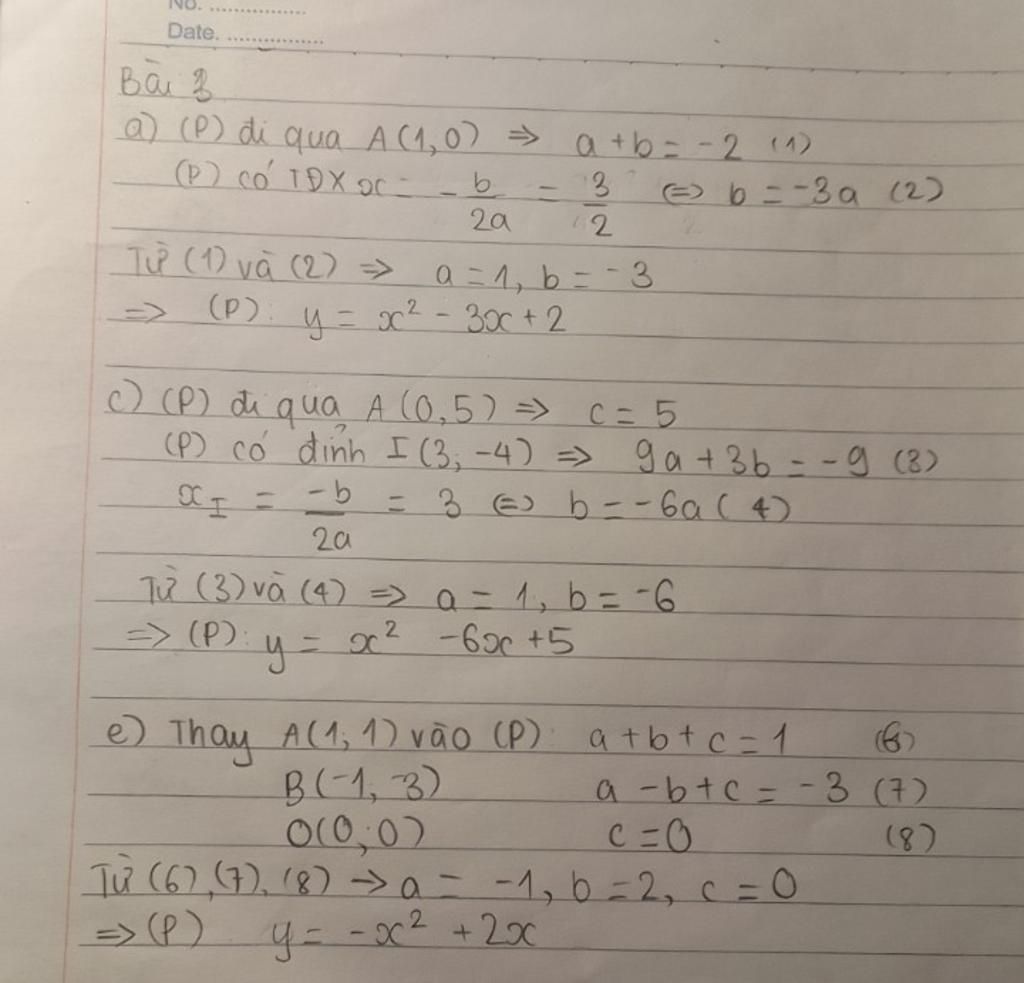 No. ................
Date. ................
Bài 3
a) (P) đi qua A(1,0) => a+b = -2 (1)
(P) có TĐX x = -b/2a = 3/2 <=> b = -3a (2)
Từ (1) và (2) => a = 1, b = -3
=> (P): y = x² - 3x + 2
c) (P) đi qua A(0,5) => c = 5
(P) có đỉnh I(3; -4) => 9a + 3b = -9 (3)
x_I = -b/2a = 3 <=> b = -6a (4)
Từ (3) và (4) => a = 1, b = -6
=> (P): y = x² -6x + 5
e) Thay A(1; 1) vào (P): a + b + c = 1 (6)
B(-1; -3) a - b + c = -3 (7)
O(0; 0) c = 0 (8)
Từ (6), (7), (8) -> a = -1, b = 2, c = 0
=> (P) y = -x² + 2x